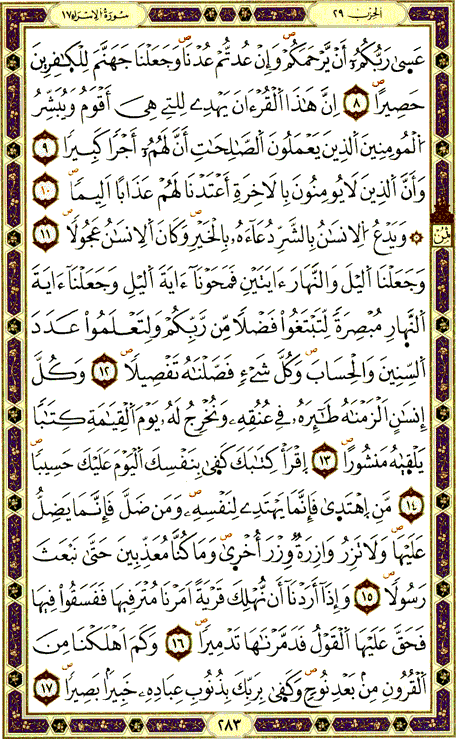 الحزب ٢٩
سورة الإسراء ١٧
عَسىٰ رَبُّكُمُۥٓ أَنْ يَّرْحَمَكُمْ ۖ وَإِنْ عُدتُّمْ عُدْنَا ۖ وَجَعَلْنَا جَهَنَّمَ لِلْكٰفِرِينَ
حَصِيرًا ۖ ٨ اِنَّ هَٰذَا اَلْقُرْءَانَ يَهْدِے لِلتِے هِيَ أَقْوَمُ وَيُبَشِّرُ
اُلْمُومِنِينَ اَلذِينَ يَعْمَلُونَ اَلصَّٰلِحَٰتِ أَنَّ لَهُمُۥٓ أَجْرًا كَبِيرًا ٩
وَأَنَّ اَلذِينَ لَا يُومِنُونَ بِالَاخِرَةِ أَعْتَدْنَا لَهُمْ عَذَابًا اَلِيمًا ۖ ١٠
۞ وَيَدْعُ اُلِانسَٰنُ بِالشَّرِّ دُعَآءَهُۥ بِالْخَيْرِ ۖ وَكَانَ اَلِانسَٰنُ عَجُولًا ۖ ١١
ثمن
وَجَعَلْنَا اَلَيْلَ وَالنَّهَارَ ءَايَتَيْنِ فَمَحَوْنَآ ءَايَةَ اَليْلِ وَجَعَلْنَآ ءَايَةَ
اَلنَّهَارِ مُبْصِرَةً لِّتَبْتَغُواْ فَضْلًا مِّن رَّبِّكُمْ وَلِتَعْلَمُواْ عَدَدَ
اَلسِّنِينَ وَالْحِسَابَ ۖ وَكُلَّ شَےْءٍ فَصَّلْنَٰهُ تَفْصِيلًا ۖ ١٢ وَكُلَّ
إِنسَٰنٍ اَلْزَمْنَٰهُ طَٰٓئِرَهُۥ فِے عُنُقِهِۦ ۖ وَنُخْرِجُ لَهُۥ يَوْمَ اَلْقِيَٰمَةِ كِتَٰبًا
يَلْقٰيٰهُ مَنشُورًا ۖ ١٣ اِقْرَأْ كِتَٰبَكَ كَفىٰ بِنَفْسِكَ اَلْيَوْمَ عَلَيْكَ حَسِيبًا ۖ
١٤ مَّنِ اِهْتَدىٰ فَإِنَّمَا يَهْتَدِے لِنَفْسِهِۦ ۖ وَمَن ضَلَّ فَإِنَّمَا يَضِلُّ
عَلَيْهَا ۖ وَلَا تَزِرُ وَازِرَةٌ وِزْرَ أُخْرىٰ ۖ وَمَا كُنَّا مُعَذِّبِينَ حَتَّىٰ نَبْعَثَ
رَسُولًا ۖ ١٥ وَإِذَآ أَرَدْنَآ أَن نُّهْلِكَ قَرْيَةً اَمَرْنَا مُتْرَفِيهَا فَفَسَقُواْ فِيهَا
فَحَقَّ عَلَيْهَا اَلْقَوْلُ فَدَمَّرْنَٰهَا تَدْمِيرًا ۖ ١٦ وَكَمَ اَهْلَكْنَا مِنَ
اَلْقُرُونِ مِنۢ بَعْدِ نُوحٍ ۖ وَكَفىٰ بِرَبِّكَ بِذُنُوبِ عِبَادِهِۦ خَبِيرًۢا بَصِيرًا ۖ ١٧
٢٨٣